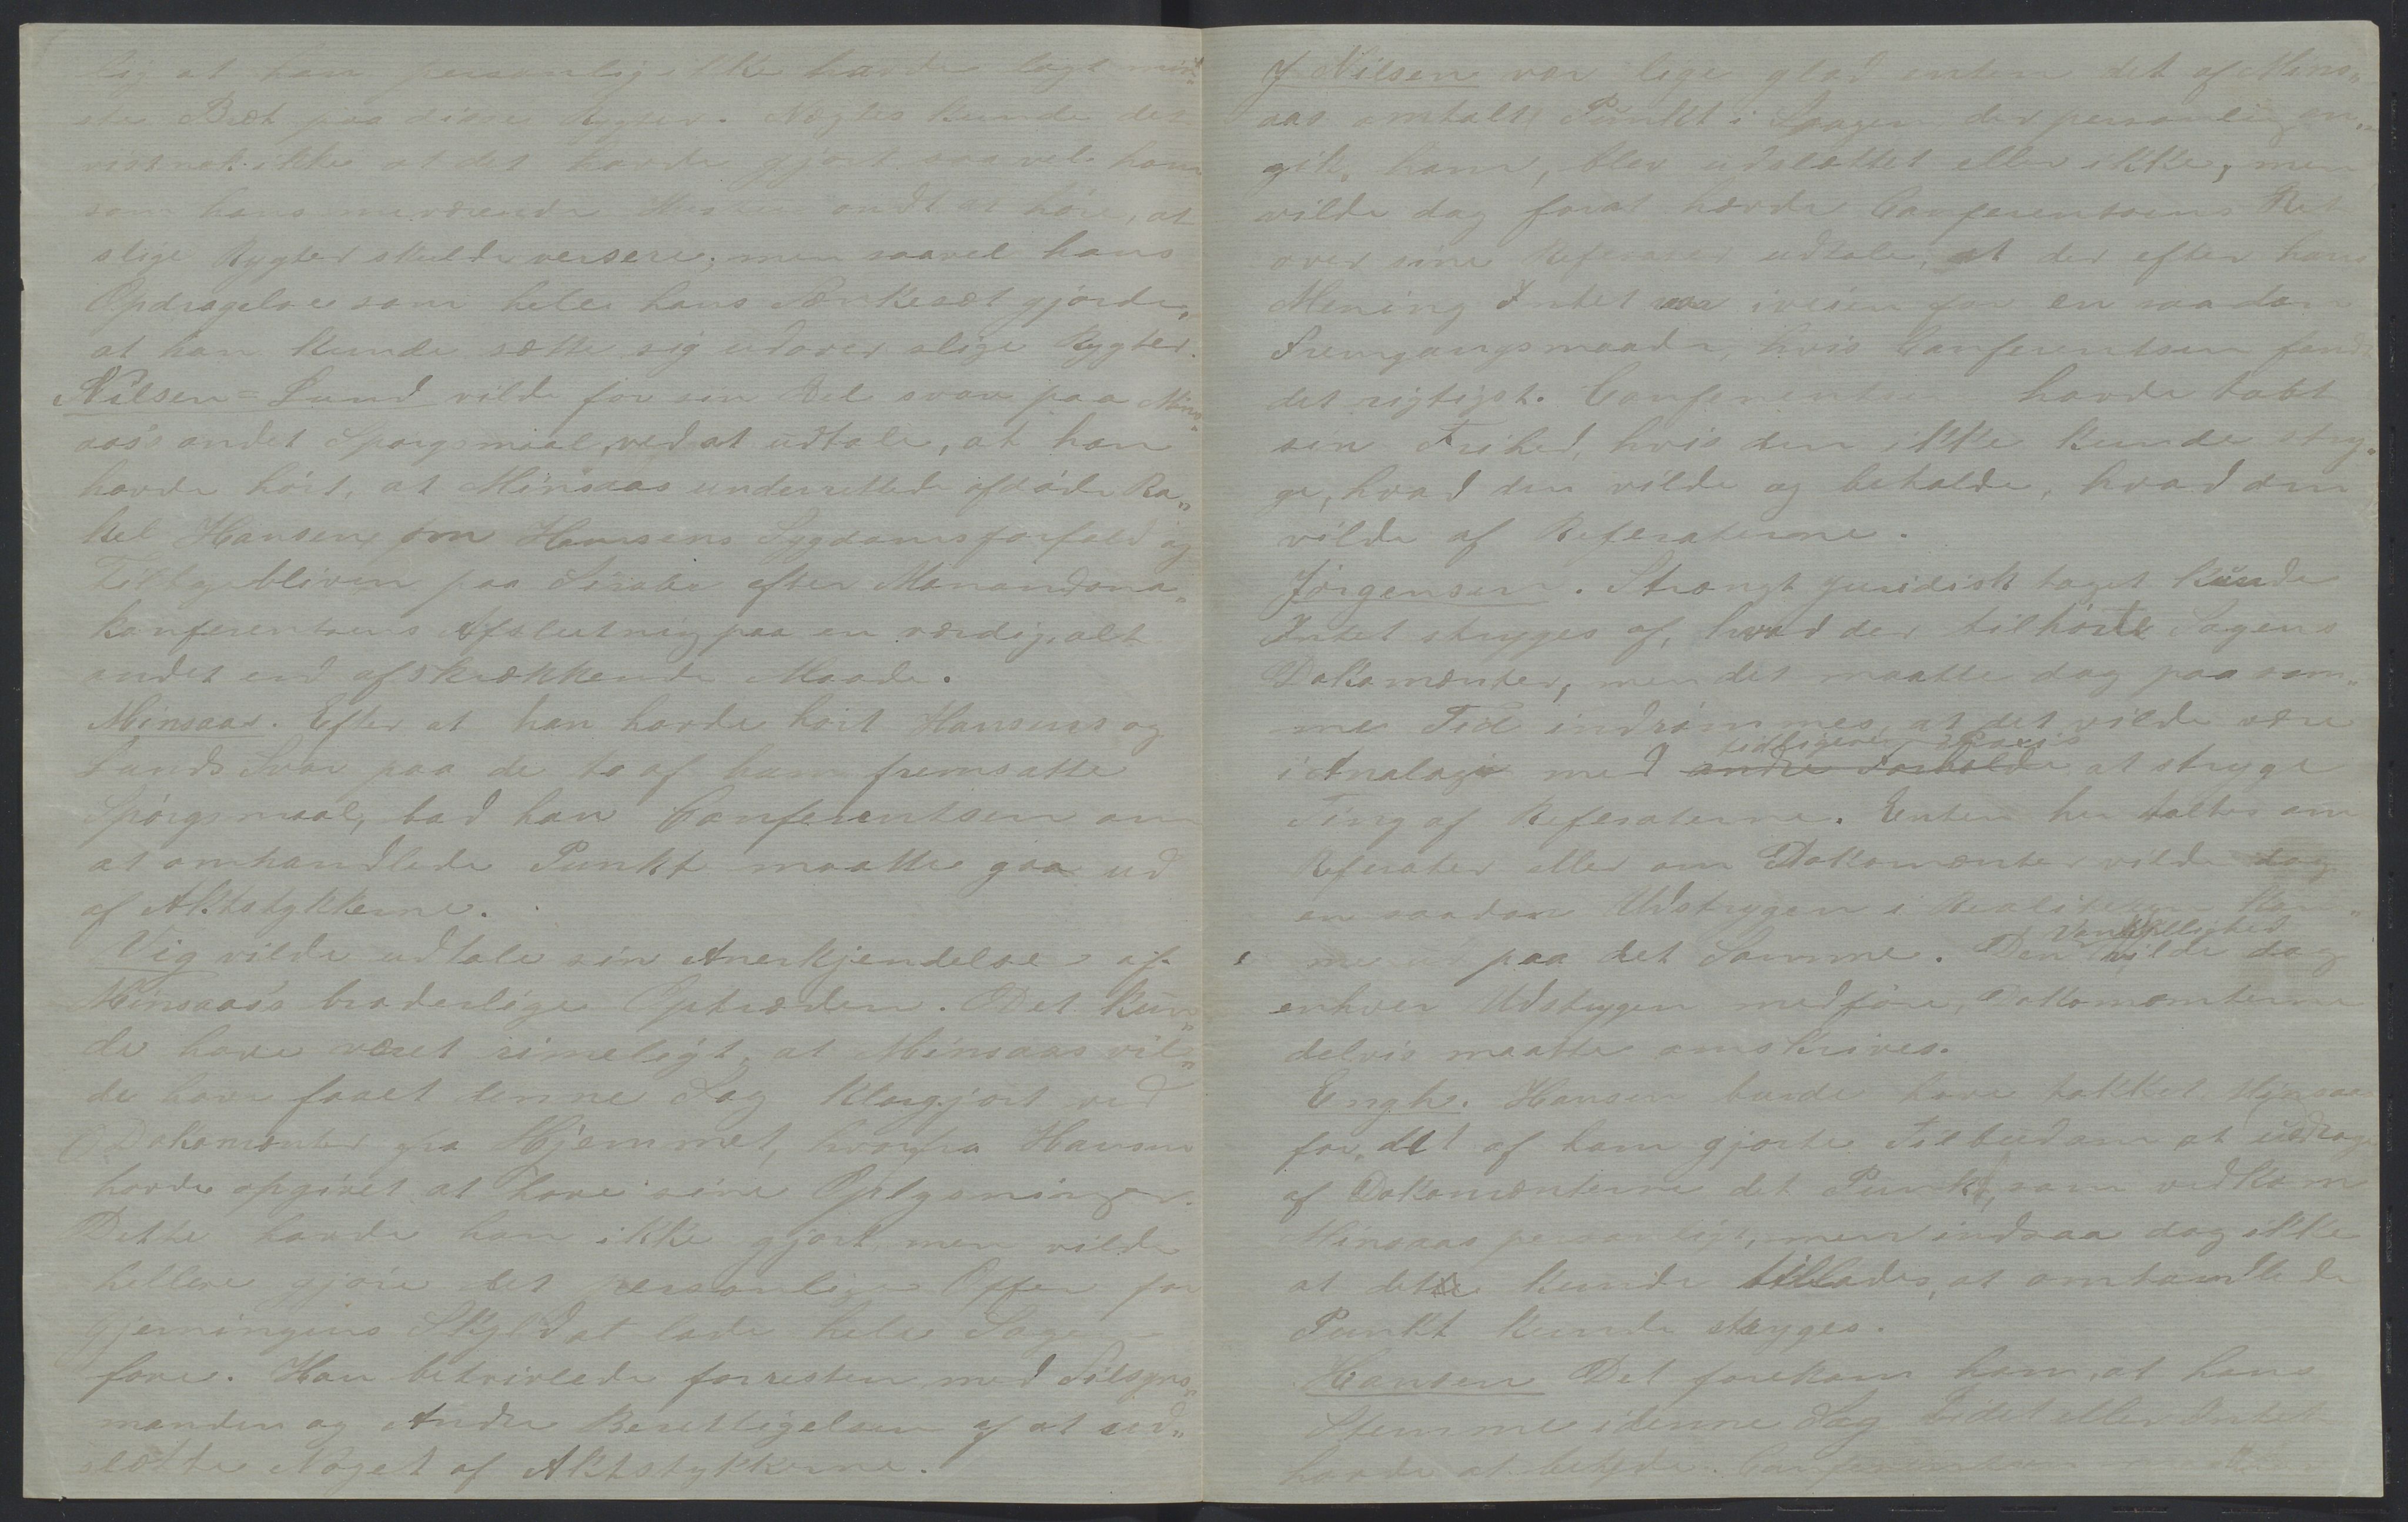 lig at han personlig ikke havde lagt mind„
ste Vægt paa disse Rygter. Nægtes kunde det
vistnok ikke at det havde gjort saavel ham
som hans nuværende Hustru ondt at höre, at
slige Rygter skulde versere; men saavel hans
Opdragelse som hele hans Tænkesæt gjorde,
at han kunde sætte sig udover slige Rygter.
Nilsen=Lund vilde for sin Del svare paa Mins„
aas's andet Spørgsmaal, ved at udtale, at han
havde hört, at Minsaas underrettede afdöde Ra„
kel Hansen om Hansens Sygdomsforfald og
Tilbagebliven paa Sirabe efter Manandona„
konferentsens Afslutning paa en værdig, alt
andet end afskrækkende Maade.
Minsaas. Efter at han havde hört Hansens og
Lunds Svar paa de to af ham fremsatte
Spörgsmaal, bad han Conferentsen om
at omhandlede Punkt maatte gaa ud
af Aktstykkerne.
Vig vilde udtale sin Anerkjendelse af
Minsaas's broderlige Optræden. Det kun„
de have været rimeligt, at Minsaas vil„
de have faaet denne Sag klargjort ved
Dokomenter fra Hjemmet, hvorfra Hansen
havde opgivet at have sine Oplysninger.
Dette havde han ikke gjort men vilde
hellere gjöre det personlige Offer for
Gjerningens Skyld at lade hele Sagen
fare. Han betvivlede forresten med Tilsyns„
manden og Andre Berettigelsen af at ud„
slette Noget af Aktstykkerne.
J Nilsen var lige glad enten det af Mins„
aas omtalte Punkt i Sagen der personlig an„
gik ham, blev udslettet eller ikke, men
vilde dog forat hævde Conferentsens Ret
over sine Referater udtale, at der efter hans
Mening Intet var iveien for en saadan
Fremgangsmaade, hvis Conferentsen fandt
det rigtigst. Conferentsen havde tabt
sin Frihed, hvis den ikke kunde stry„
ge, hvad den vilde og beholde, hvad den
vilde af Referaterne.
Jörgensen. Strængt juridisk taget kunde
Intet stryges af, hvad der tilhörte Sagens
Dokomenter, men det maatte dog paa sam„
me Tid indrömmes, at det vilde være
tidligere Praxis
i Analogi med andre Forholde at stryge
Ting af Referaterne. Enten her taltes om
Referater eller om Dokomenter vilde dog
en saadan Udstrygen i Realiteten kom„
Vanskelighed
me ud paa det Samme. Den vilde dog
enhver Udstrygen medföre, Dokomenterne
delvis maatte omskrives.
Engh. Hansen burde have takket Minsaas
for det af ham gjorte Tilbud om at uddrage
af Dokomenterne det Punkt, som vedkom
Minsaas personligt, men indsaa dog ikke
at dette kunde tillades, at omhandlede
Punkt kunde stryges.
Hansen Det forekom ham, at hans
Stemme i denne Sag Lidet eller Intet
havde at betyde. Conferentsen